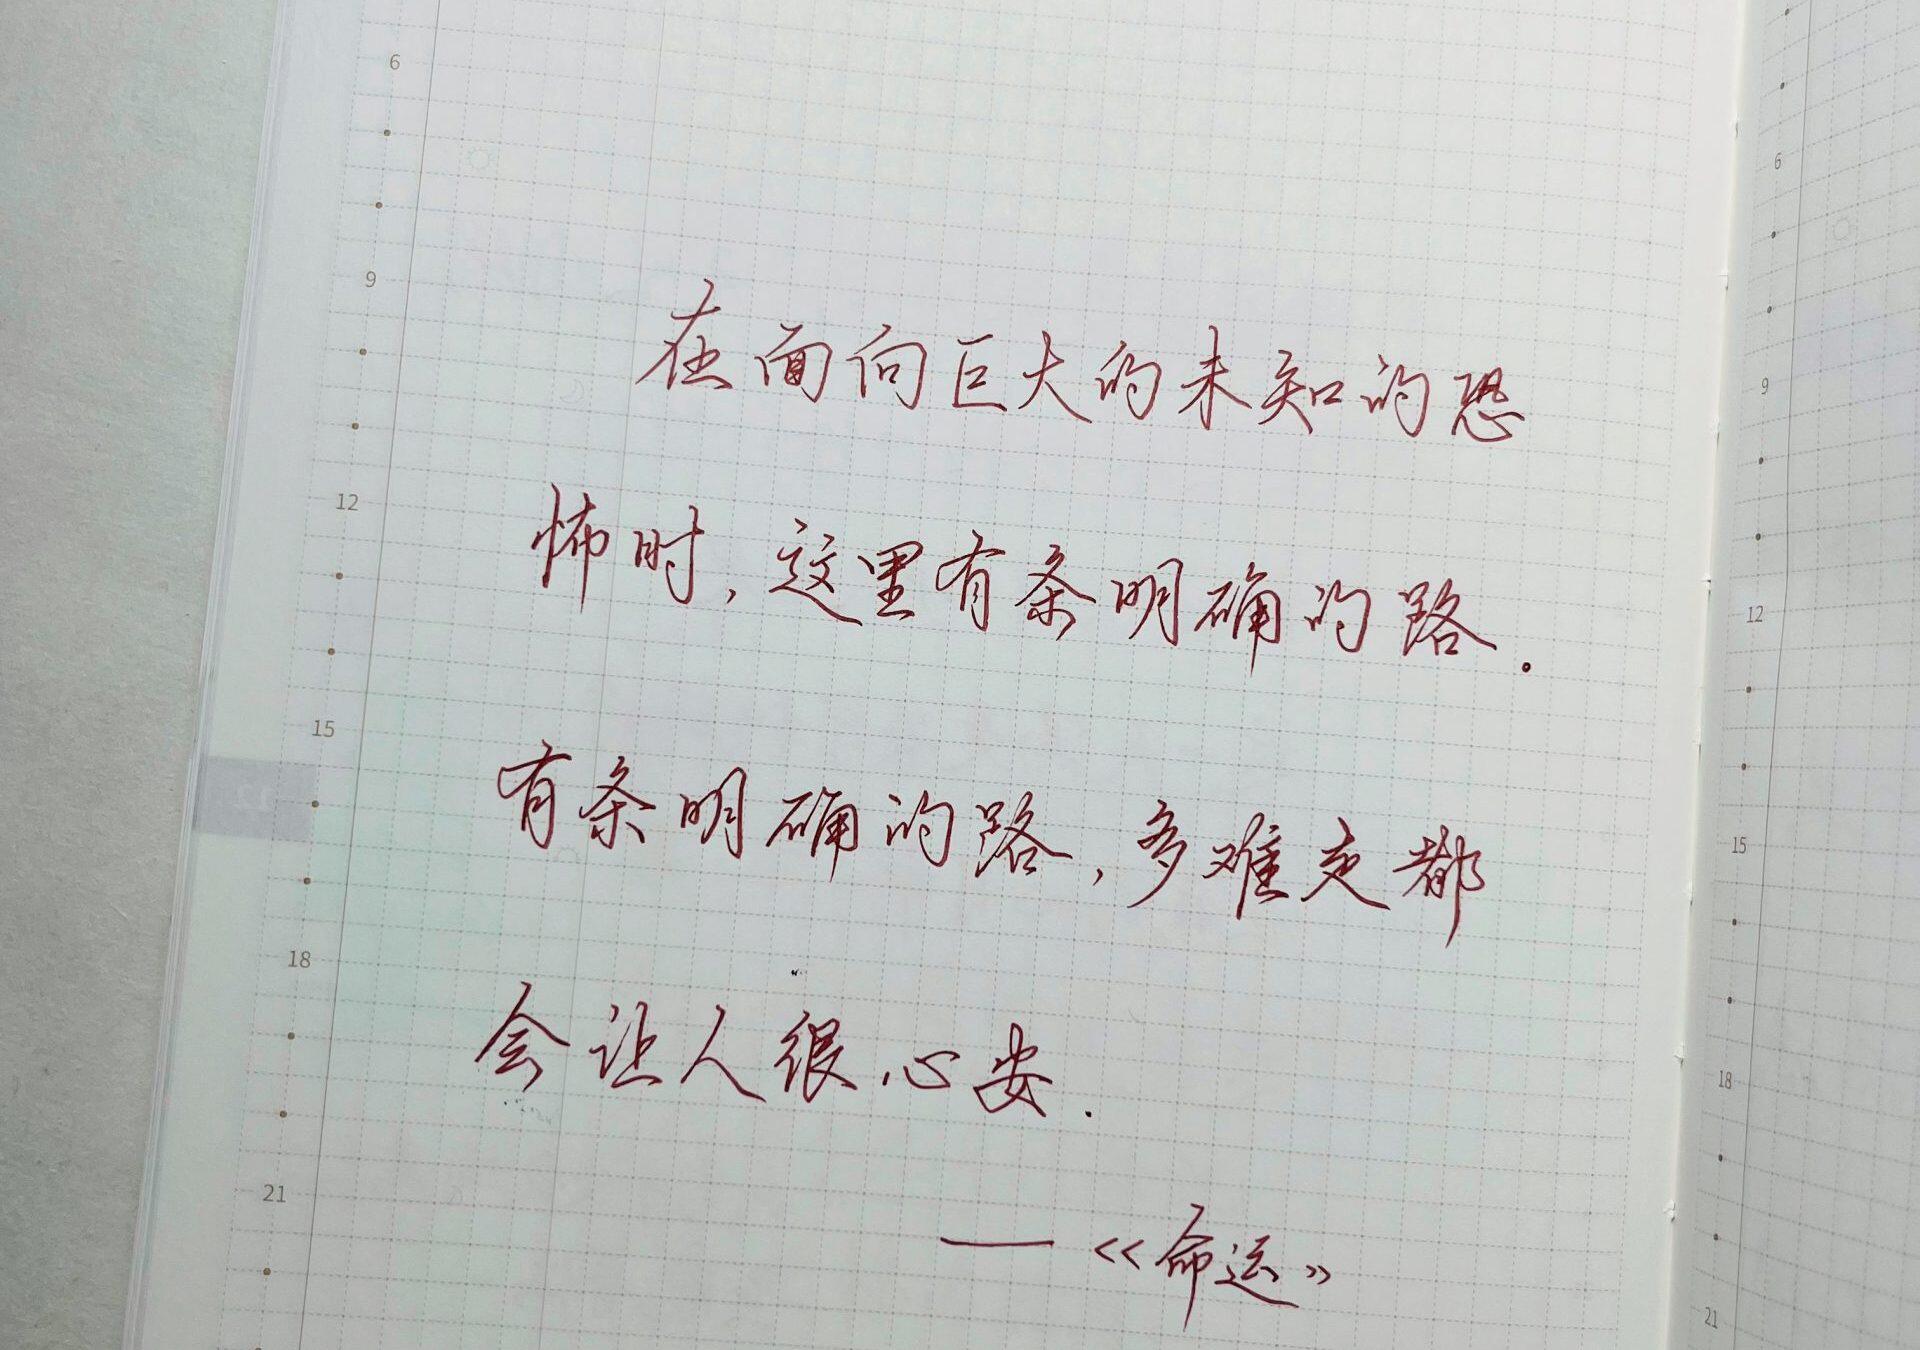 6
9
12
15
18
21
在面向巨大的未知的恐
怖时,这里有条明确的路.
有条明确的路,多难走都
会让人很心安.
——《命运》
6
9
12
15
18
21